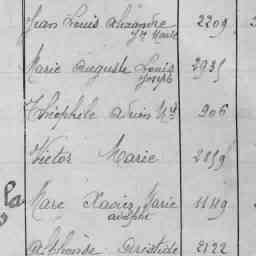 Jean Louis Alexandre 2209
Jh Marie
Marie Auguste Louis 2935
Joseph
Théophile 906
Victor Marie
Marc Xavier Marie 1119
adolphe
Aristide 2122
la